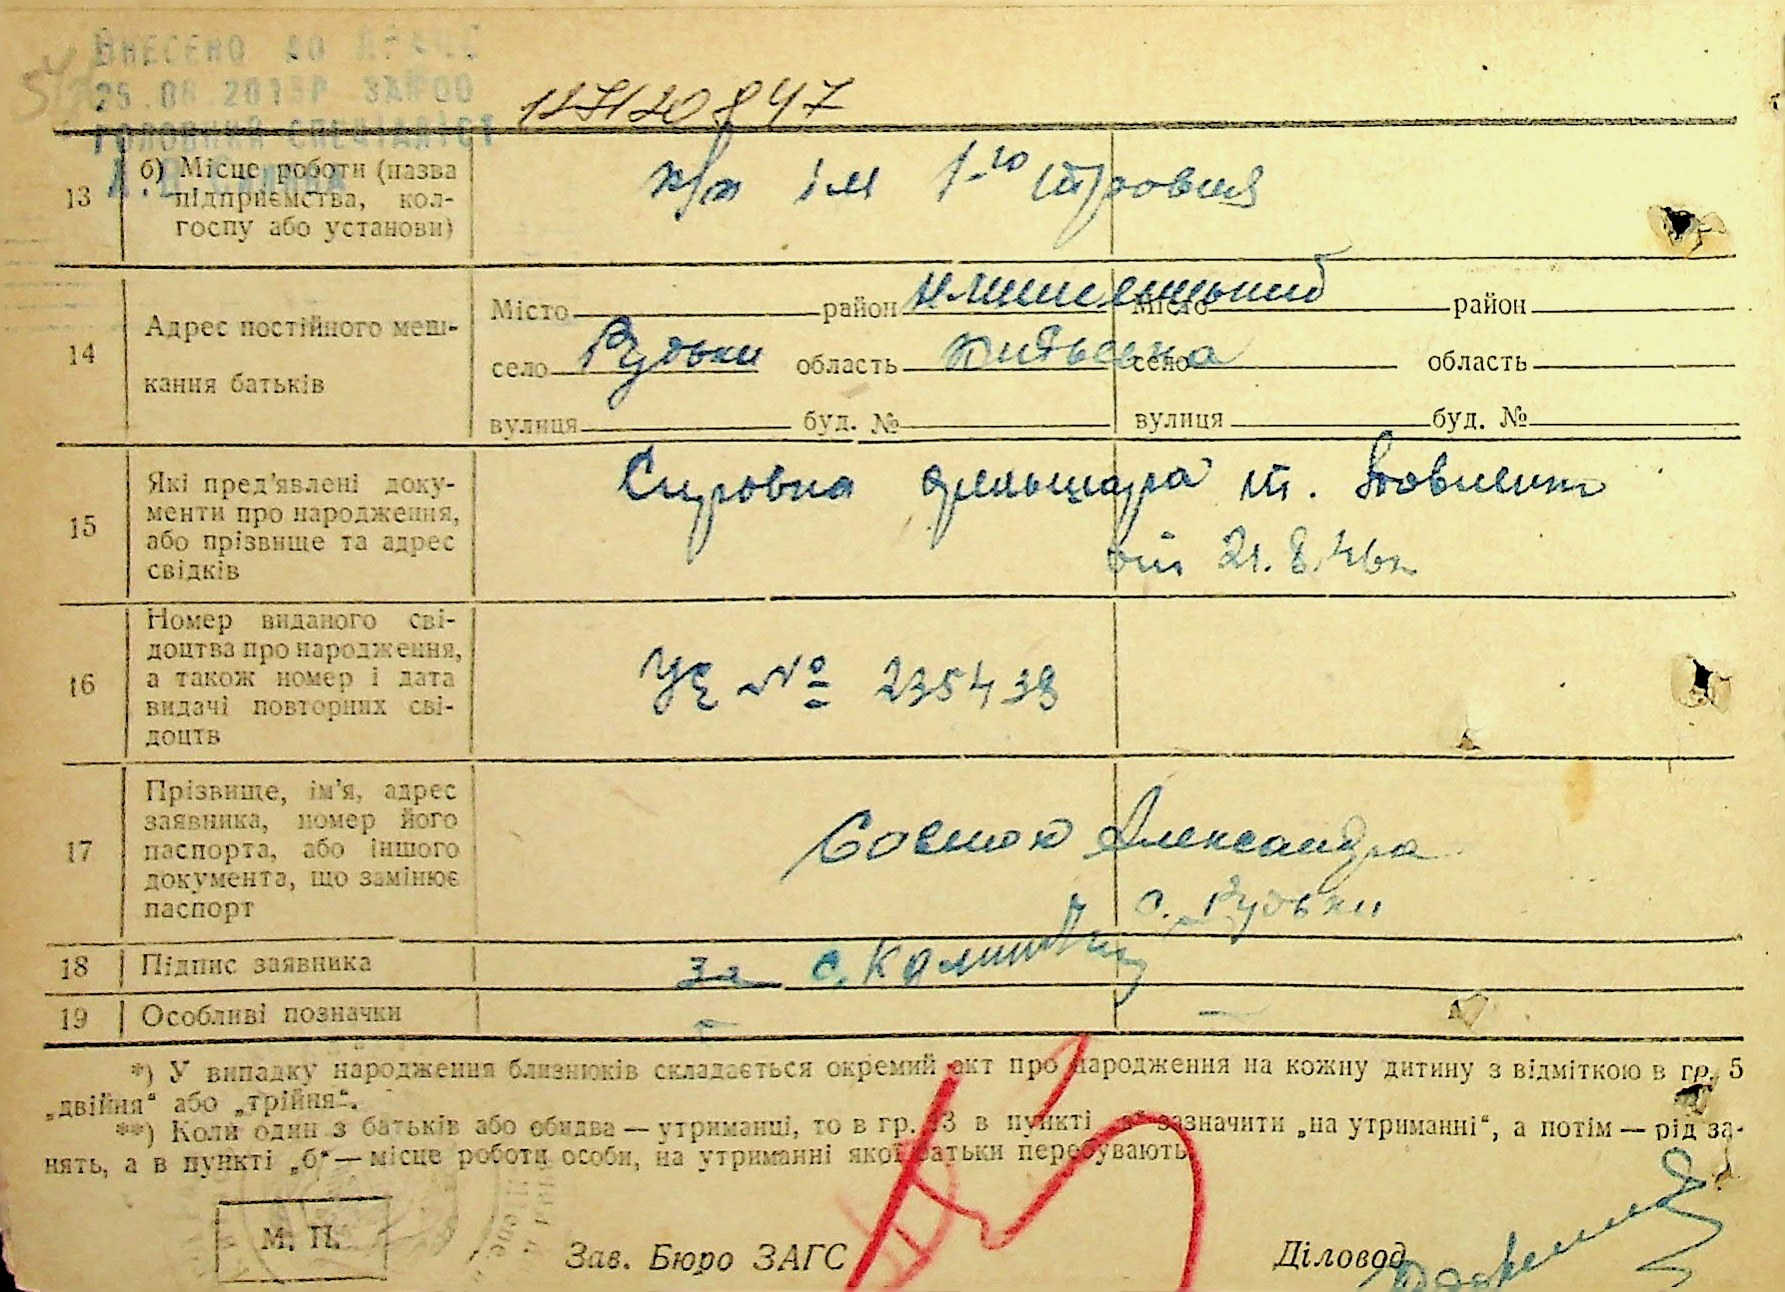 ВНЕСЕНО ДО ДРАЦС
25.08.2015Р ЗАРОО
ГОЛОВНИЙ СПЕЦІАЛІСТ
12712084 7
13
б) Місце роботи (назва
підприємства, кол-
госпу або установи)
к/г ім 1-го Травня
14
Адрес постійного меш-
кання батьків
Місто район місто район
село Рудьки область село область
вулиця буд. № вулиця буд. №
15
Які пред'явлені доку-
менти про народження,
або прізвище та адрес
свідків
Справка фельшара
від 21.8.46р
16
Номер виданого сві-
доцтва про народження,
а також номер і дата
видачі повторних сві-
доцтв
УЄ № 235438
17
Прізвище, ім'я, адрес
заявника, номер його
паспорта, або іншого
документа, що замінює
паспорт
Александра
с. Рудьки
18 Підпис заявника за
19 Особливі позначки — —
*) У випадку народження близнюків складається окремий акт про народження на кожну дитину з відміткою в гр. 5
„двійня“ або „трійня“.
**) Коли один з батьків або обидва — утриманці, то в гр. 13 в пункті „а“ зазначити „на утриманні“, а потім — рід за-
нять, а в пункті „б“ — місце роботи особи, на утриманні якої батьки перебувають.
М. П.
Зав. Бюро ЗАГС Діловод